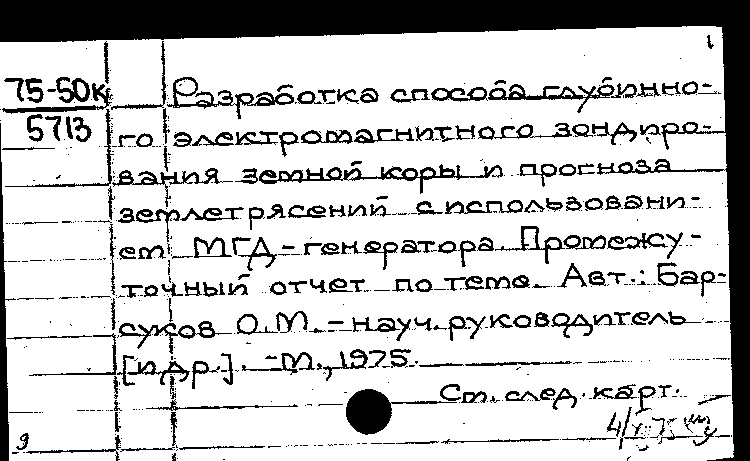 1
75-50к
5713
Разработка способа глубинно-
го электромагнитного зондиро-
вания земной коры и прогноза
землетрясений с использовани-
ем МГД-генератора. Промежу-
точный отчет по теме. Авт.: Бар-
суков О.М. - науч. руководитель
[и др.]. - М., 1975.
См. след. карт.
9